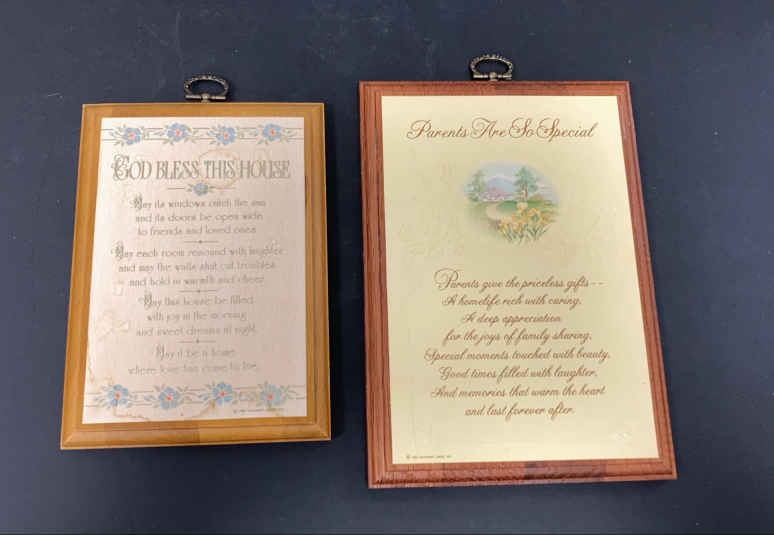 GOD BLESS THIS HOUSE
May its windows catch the sun
and its doors be open wide
to friends and loved ones
May each room resound with laughter
and may the walls shut out troubles
and hold in warmth and cheer.
May this house be filled
with joy in the morning
and sweet dreams at night.
May it be a home
where love has come to live.
Parents Are So Special
Parents give the priceless gifts--
A homelife rich with caring,
A deep appreciation
for the joys of family sharing,
Special moments touched with beauty,
Good times filled with laughter,
And memories that warm the heart
and last forever after.